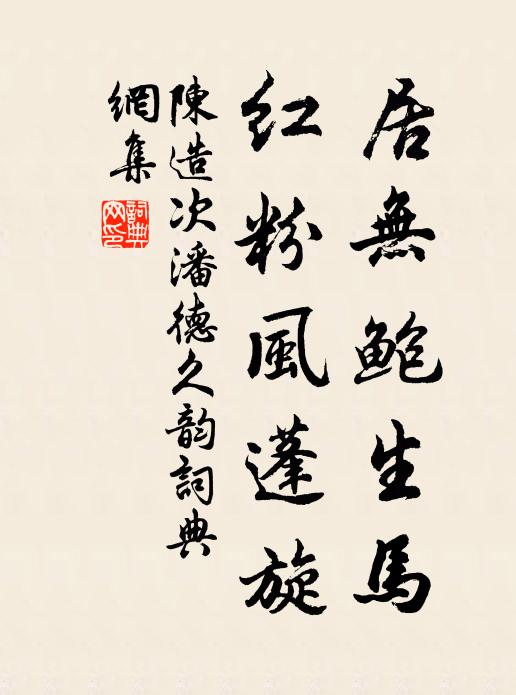 居無鮑生馬
紅粉風蓬旋
陳造次潘德久韵詞典
網集
詞典網印